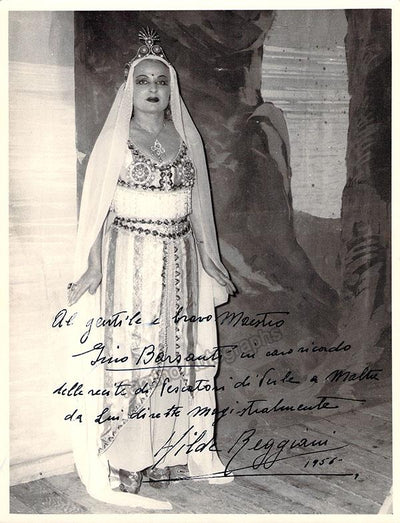 Al gentile e bravo Maestro
Gino Barsanti in caro ricordo
delle recite di Pescatori di Perle a Malta
da Lui dirette magistralmente
Hilde Reggiani
1956